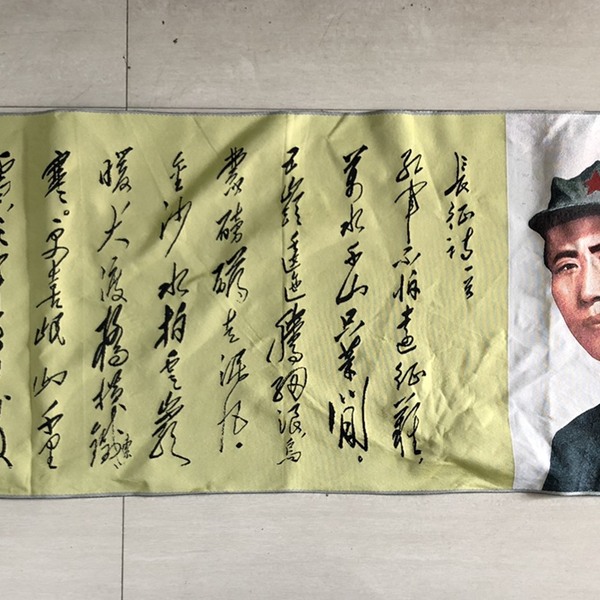 長征詩一首
紅軍不怕遠征難,
萬水千山只等閒。
五嶺逶迤騰細浪烏
蒙磅礴走泥丸。
金沙水拍雲崖
暖大渡橋横鐵索
寒。更喜岷山千里